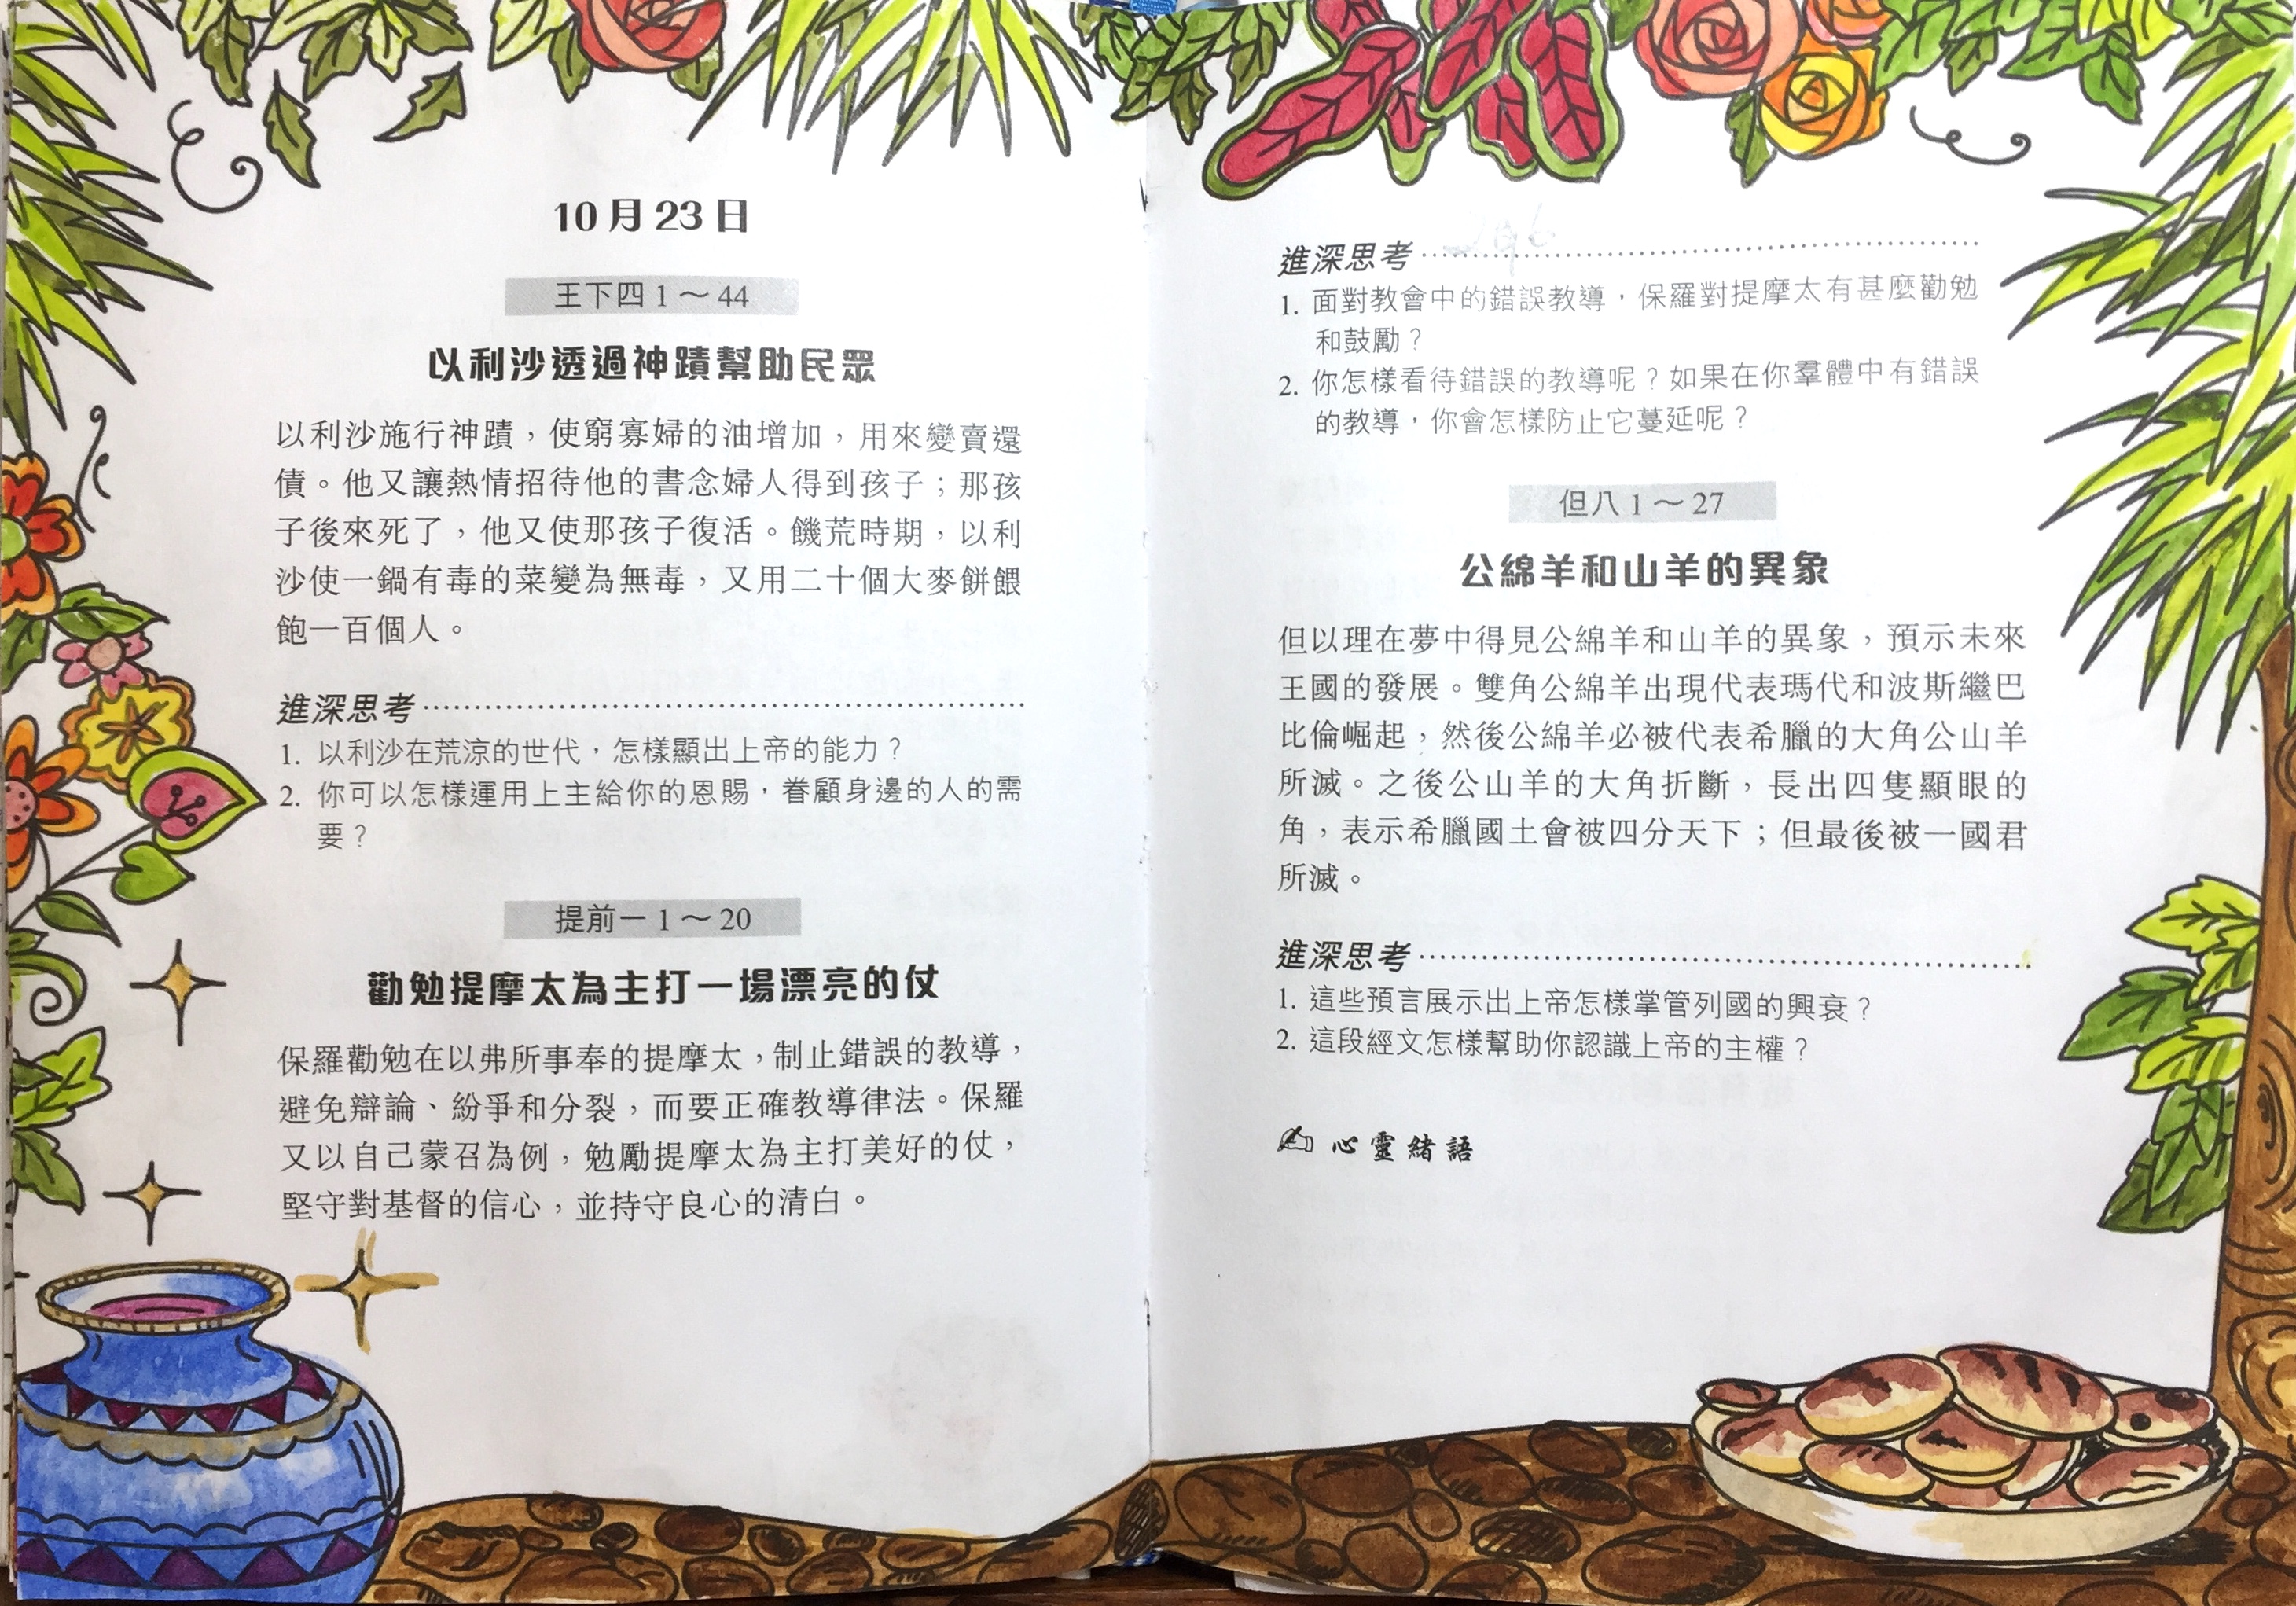 10 月 23 日
王下四 1～44
以利沙透過神蹟幫助民眾
以利沙施行神蹟，使窮寡婦的油增加，用來變賣還
債。他又讓熱情招待他的書念婦人得到孩子；那孩
子後來死了，他又使那孩子復活。饑荒時期，以利
沙使一鍋有毒的菜變為無毒，又用二十個大麥餅餵
飽一百個人。
進深思考
1. 以利沙在荒涼的世代，怎樣顯出上帝的能力？
2. 你可以怎樣運用上主給你的恩賜，眷顧身邊的人的需
要？
提前一 1～20
勸勉提摩太為主打一場漂亮的仗
保羅勸勉在以弗所事奉的提摩太，制止錯誤的教導，
避免辯論、紛爭和分裂，而要正確教導律法。保羅
又以自己蒙召為例，勉勵提摩太為主打美好的仗，
堅守對基督的信心，並持守良心的清白。
進深思考
1. 面對教會中的錯誤教導，保羅對提摩太有甚麼勸勉
和鼓勵？
2. 你怎樣看待錯誤的教導呢？如果在你羣體中有錯誤
的教導，你會怎樣防止它蔓延呢？
但八 1～27
公綿羊和山羊的異象
但以理在夢中得見公綿羊和山羊的異象，預示未來
王國的發展。雙角公綿羊出現代表瑪代和波斯繼巴
比倫崛起，然後公綿羊必被代表希臘的大角公山羊
所滅。之後公山羊的大角折斷，長出四隻顯眼的
角，表示希臘國土會被四分天下；但最後被一國君
所滅。
進深思考
1. 這些預言展示出上帝怎樣掌管列國的興衰？
2. 這段經文怎樣幫助你認識上帝的主權？
心靈緒語